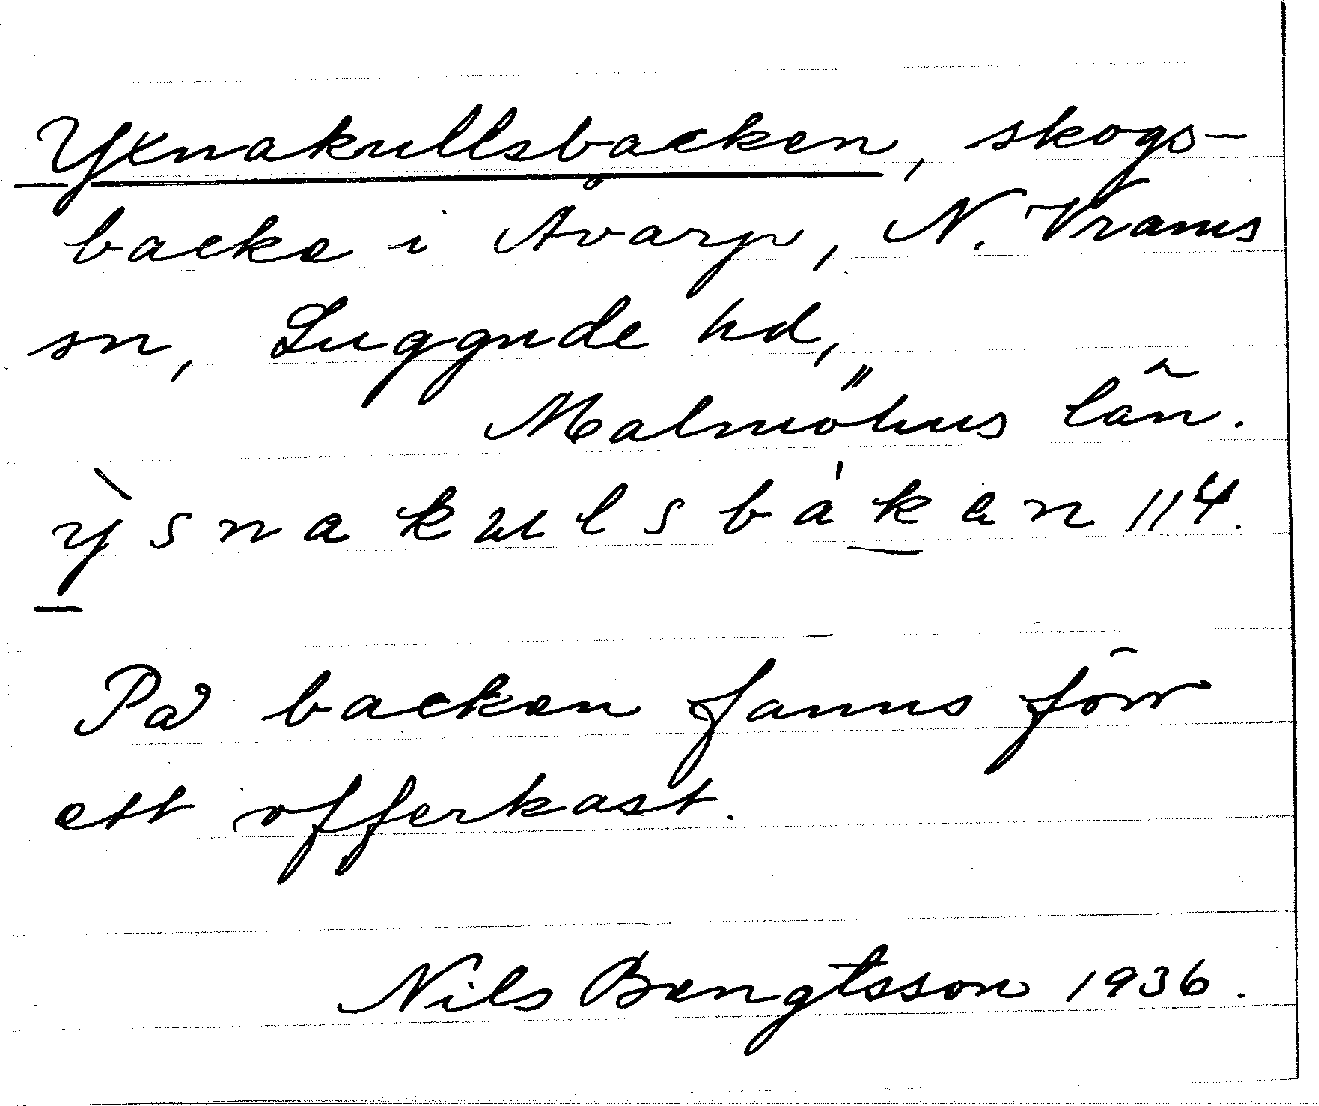 Yxnakullsbacken, skogs-
backe i Åvarp, N. Vrams
sn, Luggude hd,
Malmöhus län.
ỳsnakulsbákan 114.
På backen fanns förr
ett offerkast.
Nils Bengtsson 1936.